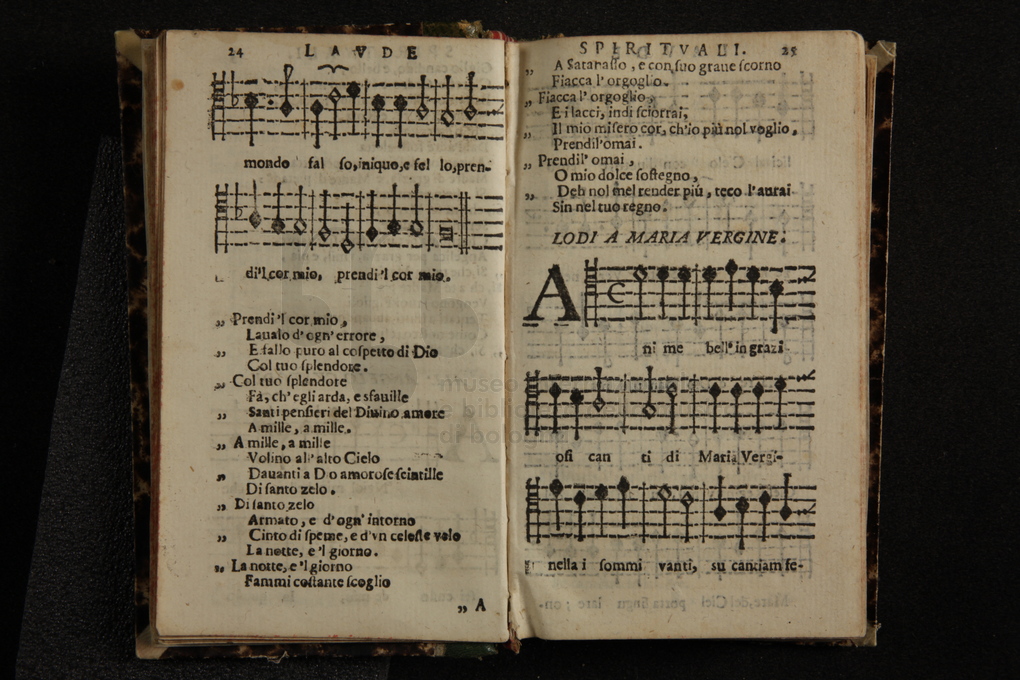 24 LAVDE
mondo fal so, iniquo, e fel lo, pren-
di'l cor mio, prendi'l cor mio.
„ Prendi'l cor mio,
Laualo d'ogn'errore,
„ E fallo puro al cospetto di Dio
Col tuo splendore.
„ Col tuo splendore
Fà, ch'egli arda, e sfauille
„ Santi pensieri del Diuino amore
A mille, a mille.
„ A mille, a mille
Volino all'alto Cielo
„ Dauanti a Dio amorose scintille
Di santo zelo.
„ Di santo zelo
Armato, e d'ogn'intorno
„ Cinto di speme, e d'vn celeste velo
La notte, e'l giorno.
„ La notte, e'l giorno
Fammi costante scoglio
„ A
SPIRITVALI. 25
„ A Satanasso, e con suo graue scorno
Fiacca l'orgoglio.
„ Fiacca l'orgoglio,
E i lacci, indi sciorrai,
„ Il mio misero cor, ch'io più nol voglio,
Prendil'omai.
„ Prendil'omai,
O mio dolce sostegno,
„ Deh nol mel render più, teco l'aurai
Sin nel tuo regno.
LODI A MARIA VERGINE.
A
ni me bell'in grazi
osi can ti di Maria Vergi-
nella i sommi vanti, su cantiam se-
museo
biblio
di bologna